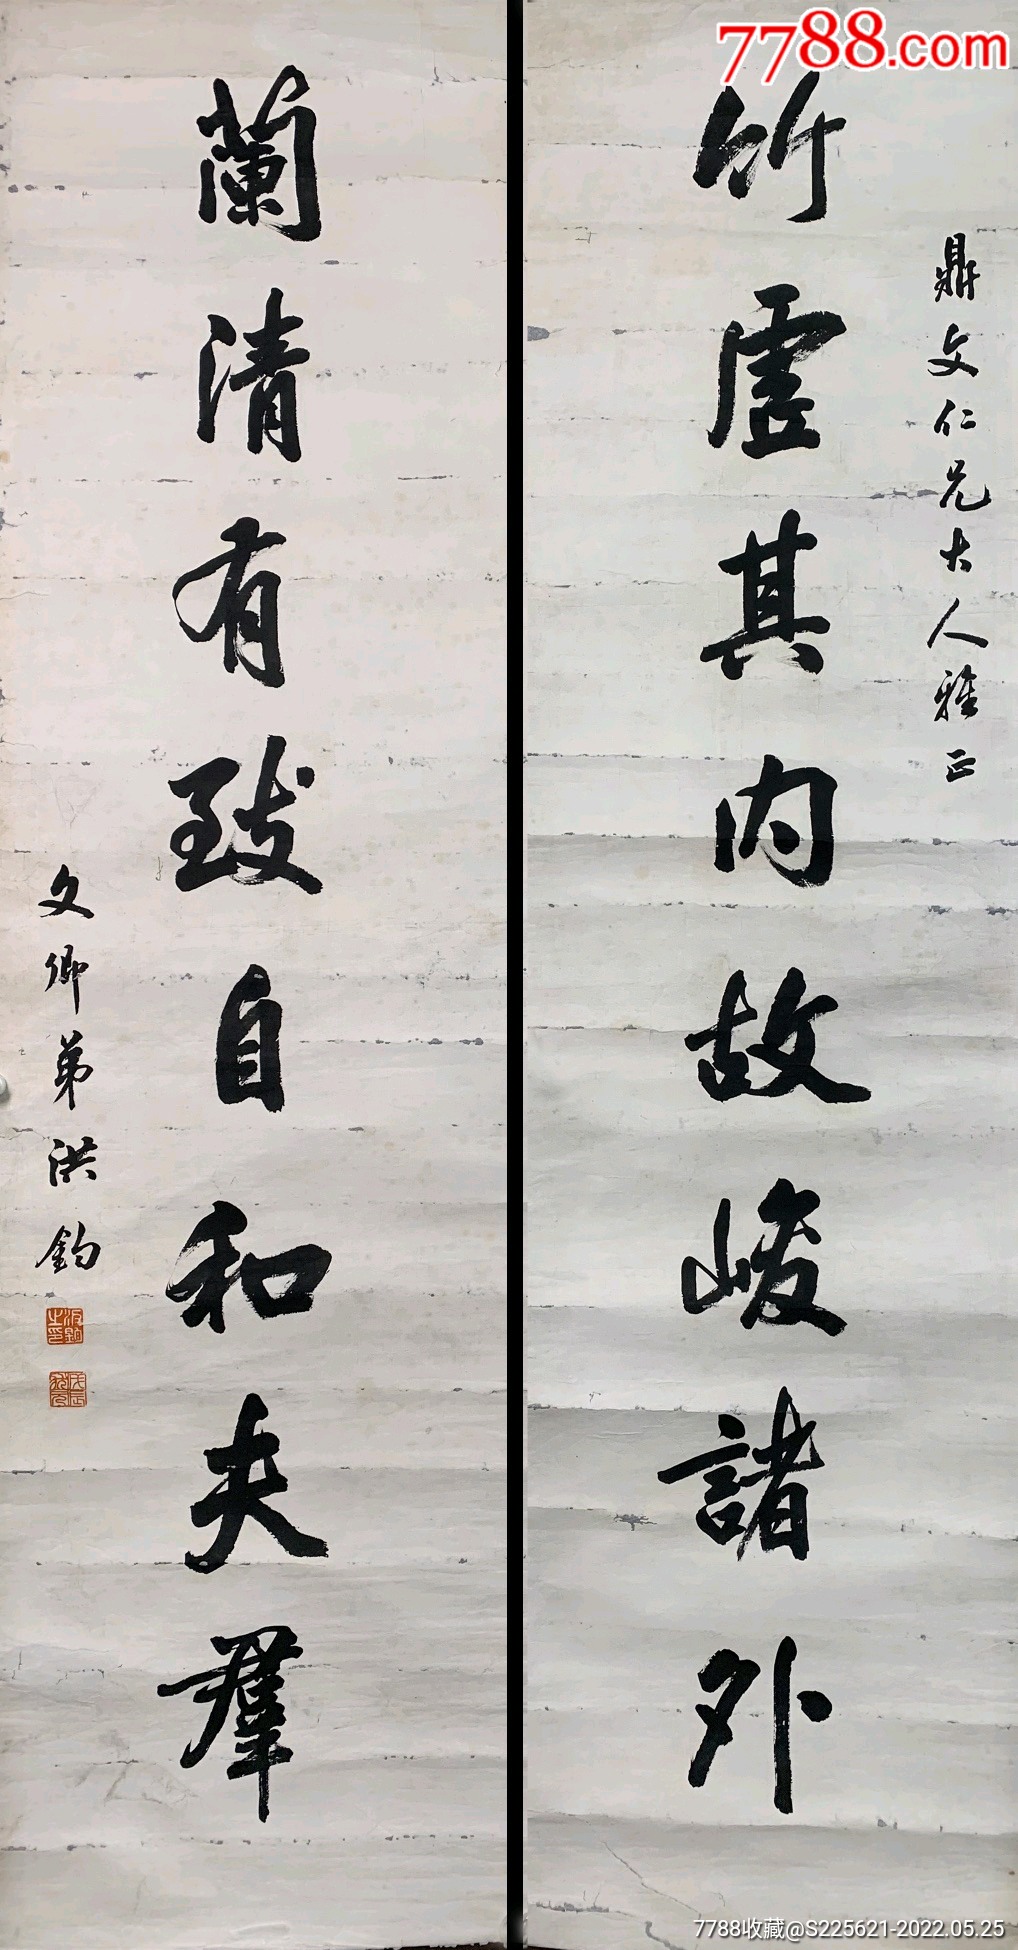 7788.com
鼎文仁兄大人雅正
竹虛其內故峻諸外
蘭清有致自和夫羣
文卿弟洪鈞
戊辰狀元
7788收藏@S225621-2022.05.25